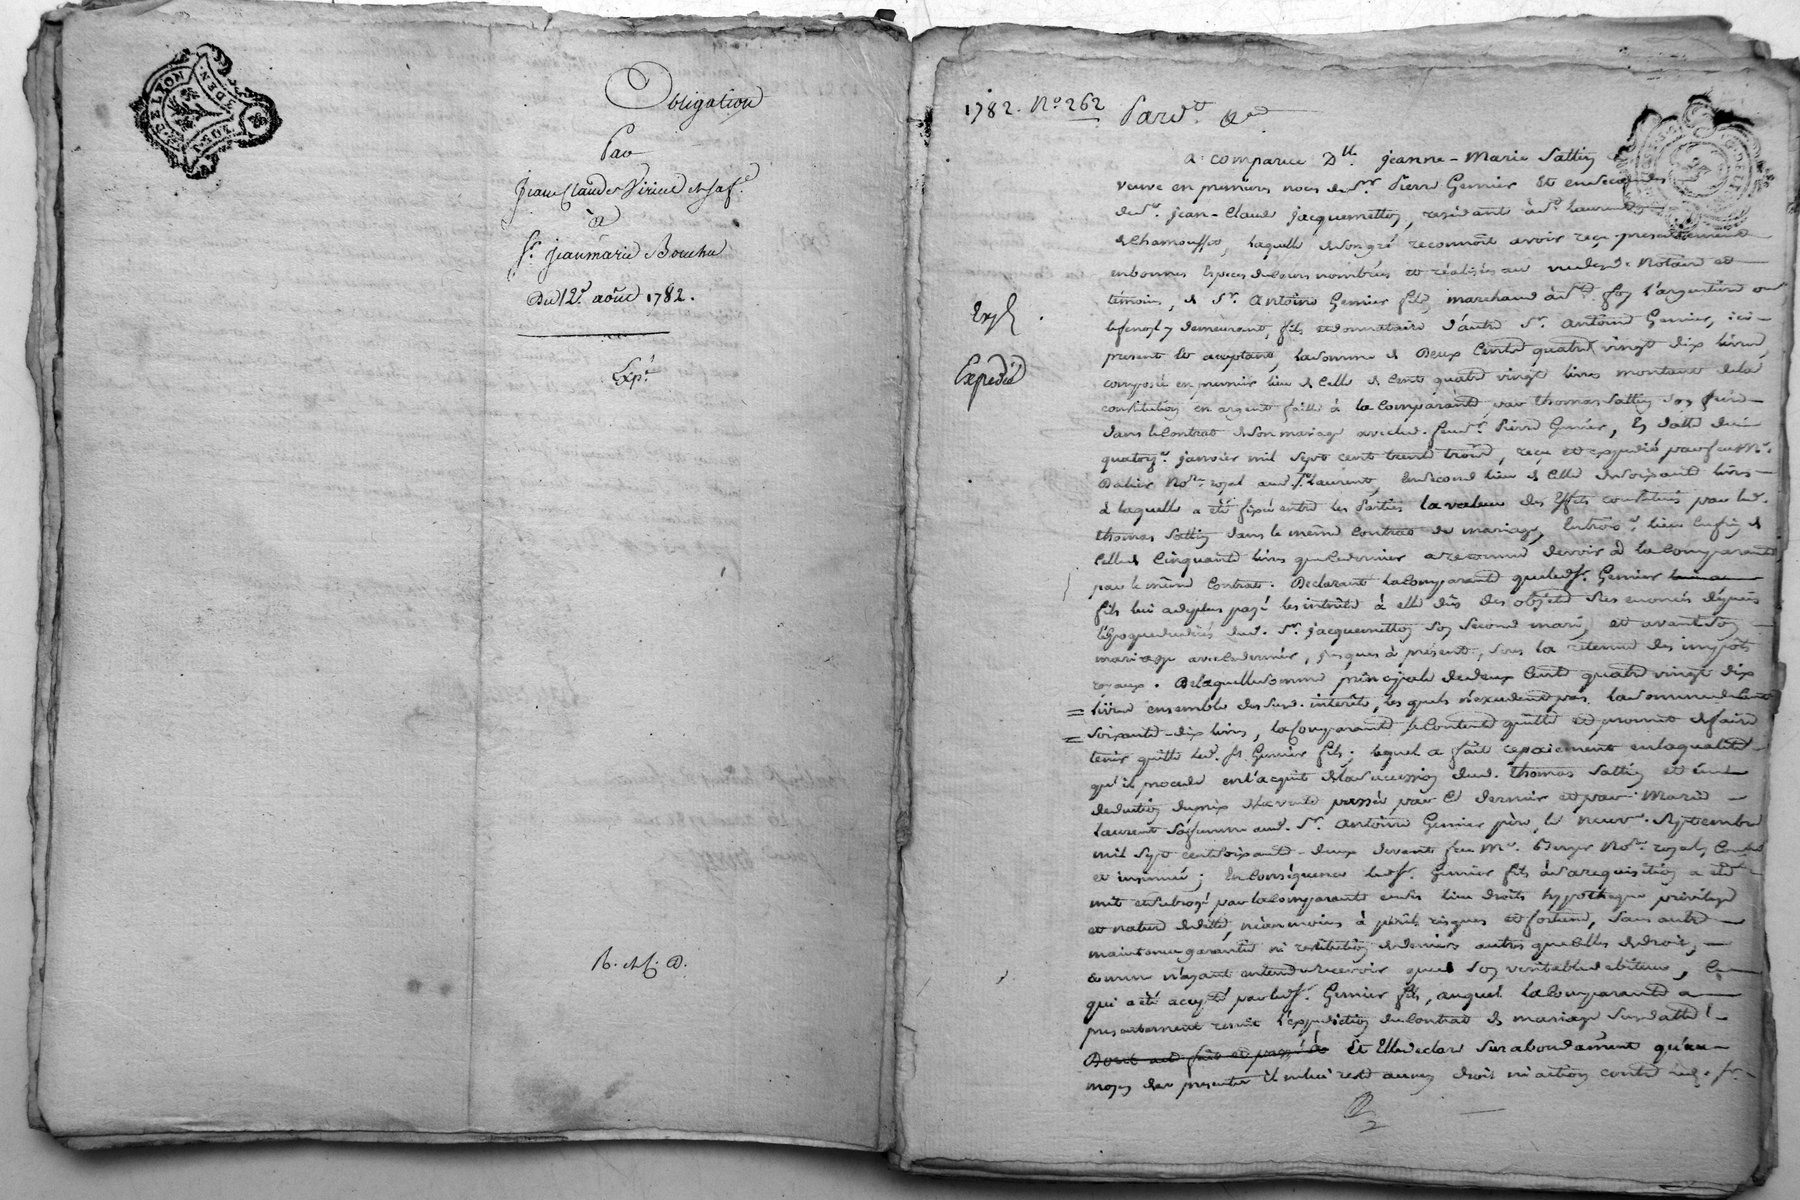 DE LYON
2 DEN.
Obligation
Par
Jean Claude Virieu et sa fe.
à
Sr. Jeanmarie Bouchu
Du 12e. août 1782.
Expé.
1782. No. 262
Pardt.
a comparue Dlle. jeanne-Marie Sattin
veuve en premiers noces de Sr. Pierre Gernier Et en secondes
de Sr. jean-Claude jacquemetton, residante à St. Laurent
de Chamousset, laquelle de son gré reconnoît avoir reçu présentement
en bonnes Especes de cours nombrées et réalisées au vu des d. Notaire et
témoins, de Sr. Antoine Gernier fils marchand à Ste. foy l'argentiere
Expedié
y demeurant, fils et donnataire d'autre Sr. Antoine Gernier, ici
present et acceptant, la somme de Deux Cents quatre vingt dix livres,
composée en premier lieu de Celle de Cent quatre vingt livres montant de la
constitution en argent faitte à la Comparante par thomas Sattin son pere
dans le Contrat de son mariage avec led. feu Sr. Pierre Gernier, En datte du
quatorze janvier mil Sept cent trente trois, reçu et expedié par feu Me.
Dalier Nore. royal aud. St. Laurent, En second lieu de Celle de soixante livres
à laquelle a été fixée entre les Parties la valeur des Effets constitués par led.
thomas Sattin dans le même contrat de mariage, Entrois. lieu Enfin de
Celle de Cinquante livres que le dernier a reconnu devoir à la Comparante
par le même Contrat. Declarant la Comparante que led. Sr. Gernier
fils lui a de plus payé les intérêts à elle dûs des objets sus enoncés depuis
l'Epoque du décès dud. Sr. jacquemetton son second mari, et avant son
mariage avec le dernier, jusques à présent, sous la retenue des impôts
royaux. De laquelle somme principale de deux Cents quatre vingt dix
livres ensemble des sus d. intérêts, les quels n'excedent pas la somme de Cent
soixante-dix livres, la Comparante se Contente quitte et promet de faire
tenir quitte led. Sr. Gernier fils; lequel a fait ce paiement en la qualité
qu'il procede en l'acquit de la succession dud. thomas Sattin et en
deduction du prix de la vente passée par Ce dernier et par Marie
Laurent sa femme aud. Sr. Antoine Gernier père, le neuve. Septembre
mil Sept cent soixante-deux devant feu Me. Berger Nore. royal, Controllé
et insinué; En Conséquence led. Sr. Gernier fils à sa requisition a été
mis et subrogé par la Comparante en ses lieu droits hypothéque privilege
et nature de dette, néanmoins à périls risques et fortune, sans autre
maintenue garantie ni restitution de deniers autres que Celles de droit,
comme n'ayant entendu recevoir que de son veritable debiteur, Ce
qui a été accepté par led. Sr. Gernier fils, auquel la Comparante a
présentement remis l'expedition du Contrat de mariage susdatté.
Dont acte fait et passé à Et Elle declare Surabondamment qu'au
moyen des presentes il ne lui reste aucuns droit ni action contre led. Sr.